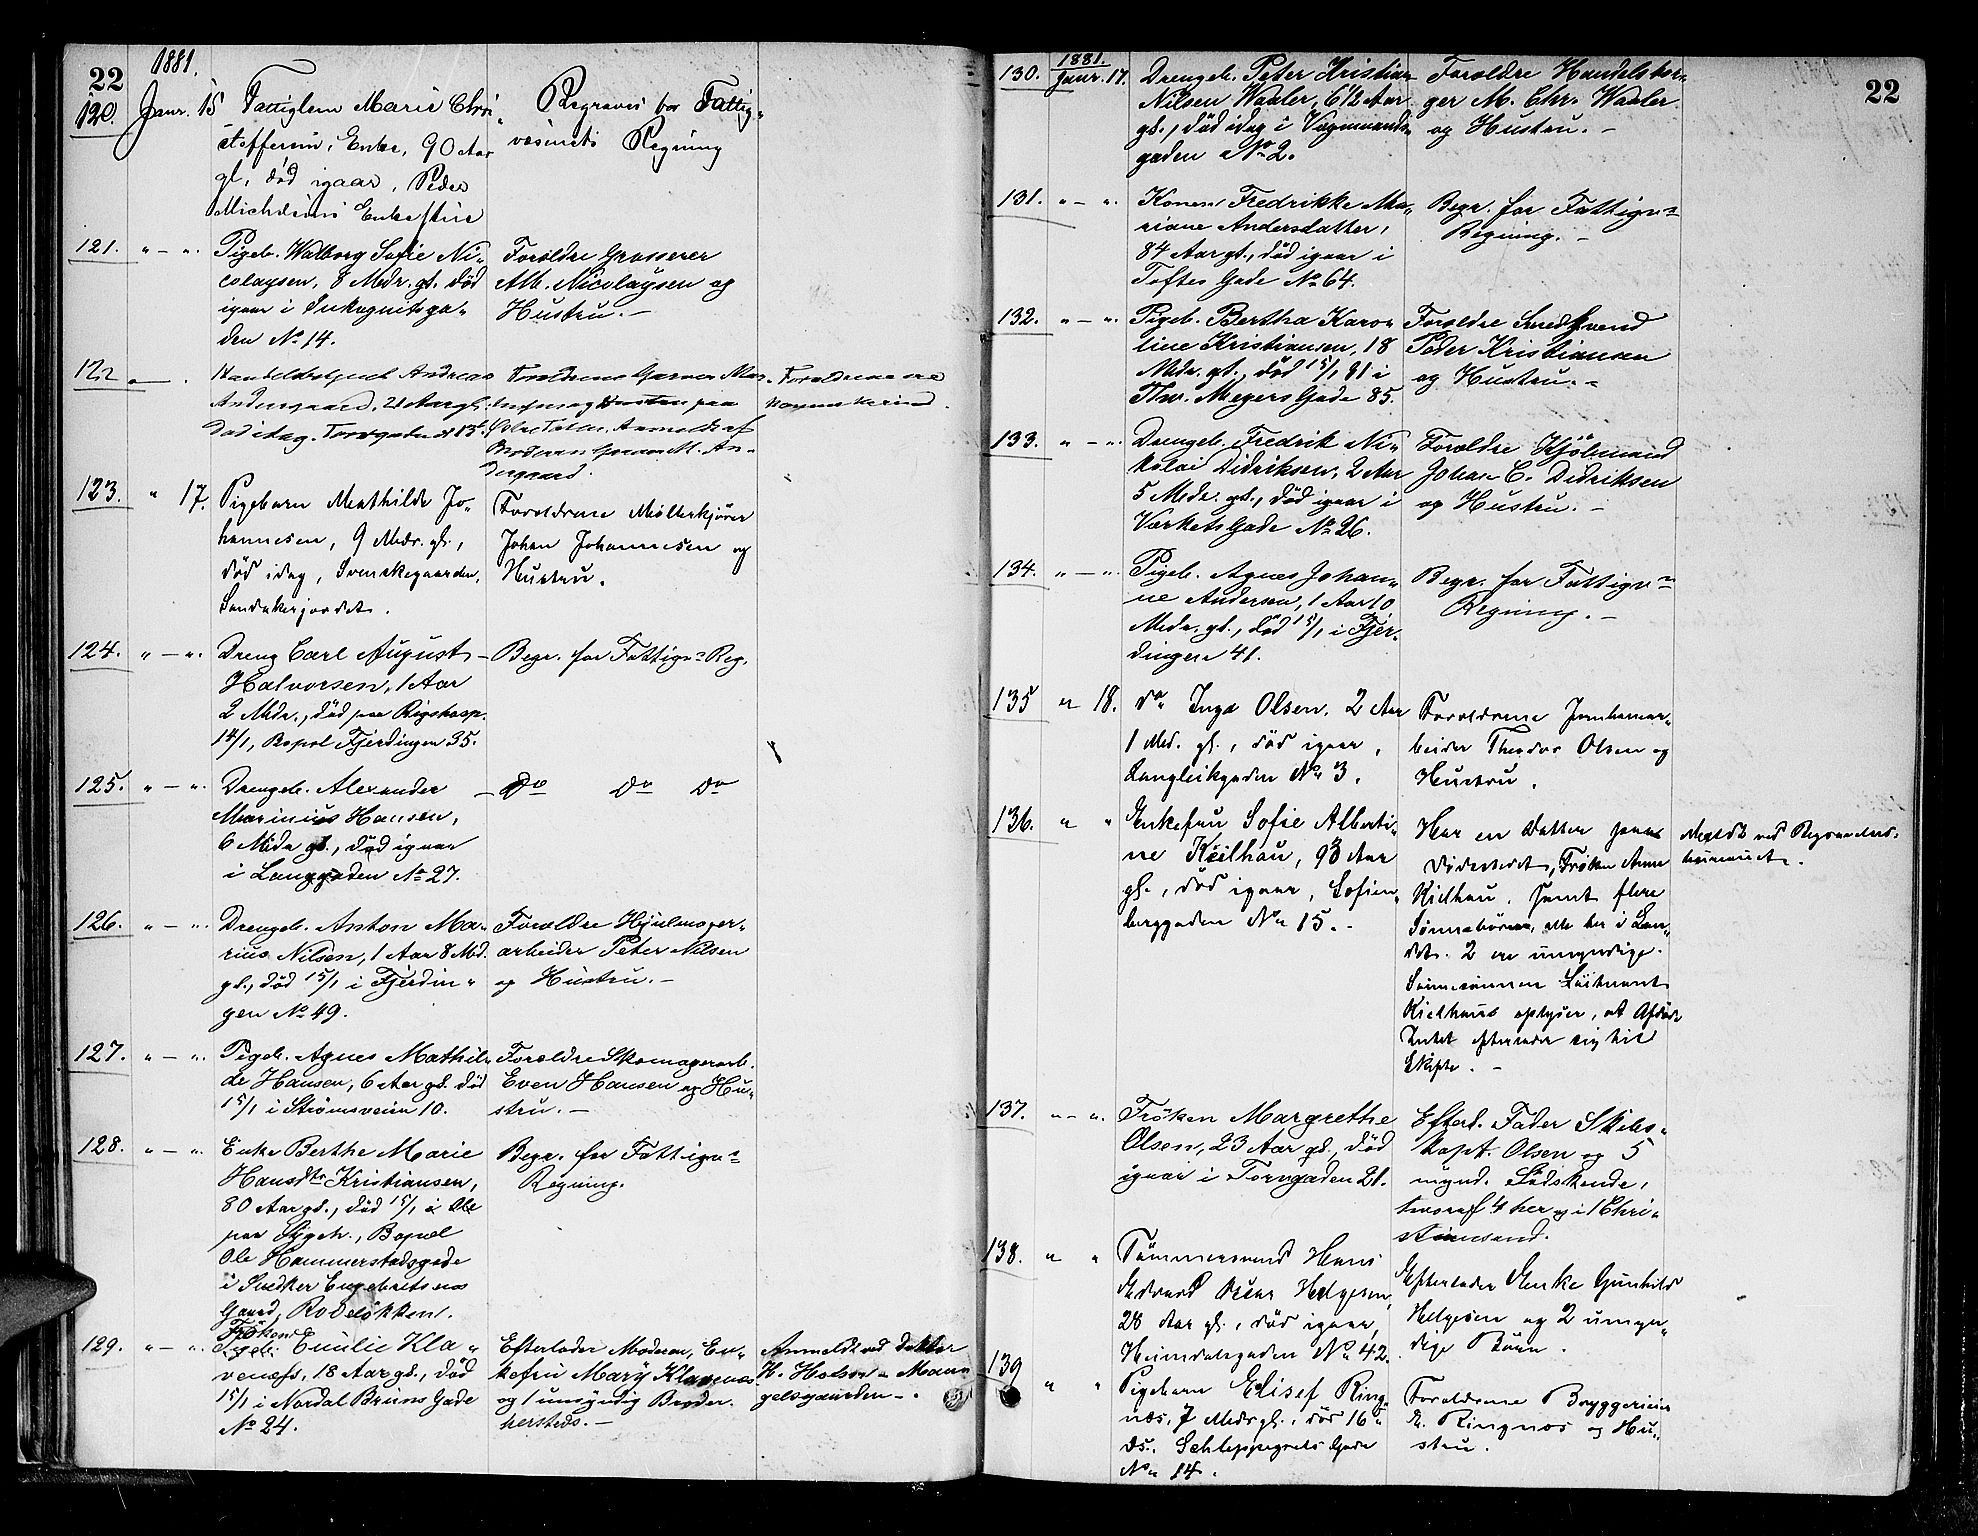 22
1881.
120. Janr. 15 Fattiglem Marie Chri-
stoffersen, Enke, 90 Aar
gl, død igaar, Peder
Michelsens Enkestue
Begraves for Fattig-
væsenets Regning
121. " - " Pigeb. Walborg Sofie Ni-
colaysen, 8 Mdr. gl. død
igaar i Inkognitoga-
den No 14.
Forældre Grosserer
Alb. Nicolaysen og
Hustru. -
122 Handelsbetjent Andreas
Andersgaard, 21 Aar gl.
Død idag. Torvgaden 13
Forældrene Garver
paa
Toten, Anmeldt af
Broderen Garver M. An-
dersgaard.
Forældrene ere
123. " 17. Pigebarn Mathilde Jo-
hannesen, 9 Mdr. gl.,
død idag, Svenskegaarden,
Sandakerjordet.
Forældrene Møllerkjører
Johan Johannesen og
Hustru.
124. " - " Dreng Carl August
Halvorsen, 1 Aar
2 Mdr., død paa Rigshosp.
14/1, Bopæl Fjerdingen 35.
- Begr. for Fattigv: Reg.
125. " - " Drengeb. Alexander
Marinius Hansen,
6 Mdr gl., død igaar
i Langgaden No 27.
- Do Do Do
126. " - " Drengeb. Anton Ma-
rius Nilsen, 1 Aar 8 Md.
gl., død 15/1 i Fjerdin-
gen No 49.
Forældre Høvlemester-
arbeider Peter Nilsen
og Hustru. -
127. " - " Pigeb. Agnes Mathil-
de Hansen, 6 Aar gl. død
15/1 i Strømsveien 10.
Forældre Skomagerarb.
Even Hansen og Hu-
stru. -
128. " - " Enke Berthe Marie
Hansdtr Kristiansen,
80 Aar gl., død 15/1
paa Sygeh., Bopæl
Ole Hammerstadsgade
i Snedker Engebretsens
Gaard, Rodeløkken.
Begr. for Fattigv:
Regning.
129. " - " Frøken
Pigeb. Emilie Kla-
venæss, 18 Aar gl., død
15/1 i Nordal Bruns Gade
No 24.
Efterlader Moderen, En-
kefru Mary Klavenæs
og 1 umyndig Broder.
hersteds. -
Anmeldt ved Doktor
H. Holson - Maan
gelsgaarden -.
22
1881.
130. Janr. 17. Drengeb. Peter Kristian
Nilsen Waaler, 6 1/2 Aar
gl., død idag i Vognmands-
gaden No 2.
Forældre Handelsbor-
ger M. Chr. Waaler
og Hustru. -
131. " - " Konen Fredrikke Ma-
riane Andersdatter,
84 Aar gl., død igaar i
Toftes Gade No 64.
Begr. for Fattigv:
Regning. -
132. " - " Pigeb. Bertha Karo-
line Kristiansen, 18
Mdr. gl., død 15/1 81 i
Thv. Meyers Gade 85.
Forældre Smedsvend
Peder Kristiansen
og Hustru. -
133. " - " Drengeb. Fredrik Ni-
kolai Didriksen, 2 Aar
5 Mdr. gl., død igaar i
Værkets Gade No 26.
Forældre Kjølmand
Johan C. Didriksen
og Hustru. -
134. " - " Pigeb. Agnes Johan-
ne Andersen, 1 Aar 10
Mdr. gl., død 15/1 i Fjer-
dingen 41.
Begr. for Fattigv:
Regning. -
135 " 18. do Inga Olsen, 2 Aar
1 Md. gl., død igaar,
Langleikgaden No 3.
Forældrene Jernbanear-
beider Theodor Olsen og
Hustru.
136. " " Enkefru Sofie Alberti-
ne Keilhau, 93 Aar
gl., død igaar, Sofien-
berggaden No 15. -
Har en Datter paa
Dødsstedet, Frøken Anne
Kielhau, samt flere
Sønnebørn, alle her i Lan-
det. 2 ere umyndige.
Sønnesønnen Løitnant
Kielhaus oplyser, at Afdøde
Intet efterlader sig til
Skifte. -
Meldt ved Begravelses-
bureauet.
137. " - " Frøken Margrethe
Olsen, 23 Aar gl., død
igaar i Torvgaden 21.
Efterl. Fader Skibs-
kapt. Olsen og 5
mynd. Sødskende,
hvoraf 4 her og i 1 Chri-
stiansand.
138. " " Tømmersvend Hans
Edvard Oscar Helgesen,
28 Aar gl., død igaar,
Heimdalsgaden No 42.
Efterlader Enke Gunhild
Helgesen og 2 umyn-
dige Børn.
139 " " Pigebarn Elisef Ring-
næs, 7 Mdr gl., død 16
ds. Schleppegrels Gade
No 14.
Forældrene Bryggerieier
E. Ringnæs og Hu-
stru.